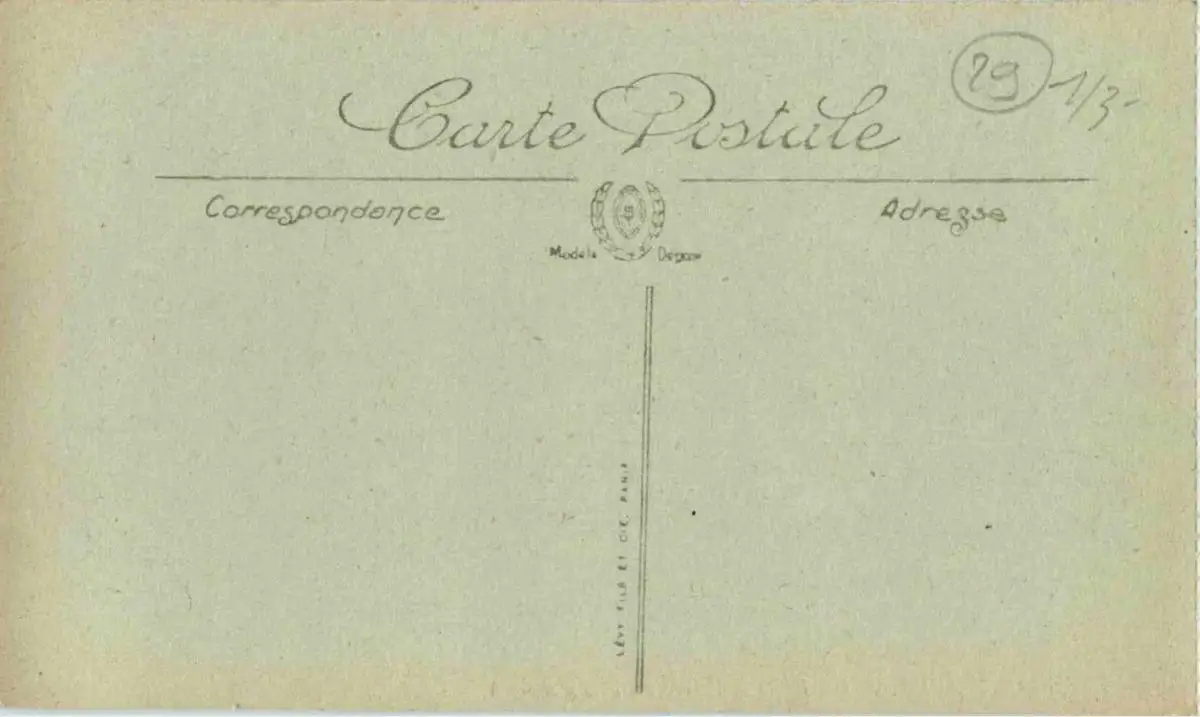 29 1/3-
Carte Postale
Correspondance
Adresse
Modèle
LÉVY FILS ET CIE, PARIS